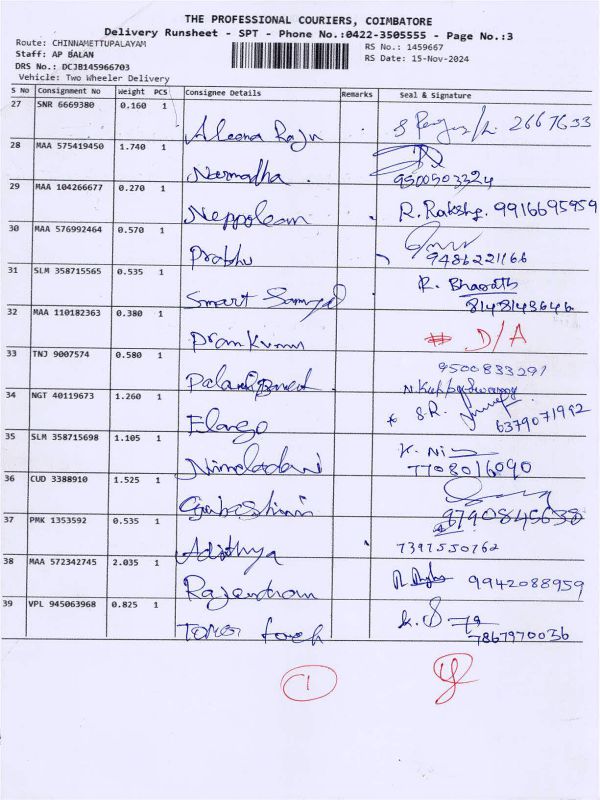 THE PROFESSIONAL COURIERS, COIMBATORE
Delivery Runsheet - SPT - Phone No.:0422-3505555 - Page No.:3
Route: CHINNAMETTUPALAYAM
RS No.: 1459667
Staff: AP BALAN
RS Date: 15-Nov-2024
DRS No.: DCJB145966703
Vehicle: Two Wheeler Delivery
S No Consignment No Weight PCS Consignee Details Remarks Seal & Signature
27 SNR 6669380 0.160 1
Aleena Raju 2667633
28 MAA 575419450 1.740 1
Narmadha 9500503324
29 MAA 104266677 0.270 1
Neppolean R. Rakshg. 9916695959
30 MAA 576992464 0.570 1
Prabhu 9486221166
31 SLM 358715565 0.535 1
Smart Samyal R. Bharath
8143143646
32 MAA 110182363 0.380 1
Pram Kumar D/A
33 TNJ 9007574 0.580 1
9500833291
34 NGT 40119673 1.260 1
Elango S.R. 6379071992
35 SLM 358715698 1.105 1
K. Ni
Nirmaladavi 7708016090
36 CUD 3388910 1.525 1
9790845638
37 PMK 1353592 0.535 1
Adithya 7397550762
38 MAA 572342745 2.035 1
Rajendran 9942088959
39 VPL 945063968 0.825 1
K. S
7867970036
1